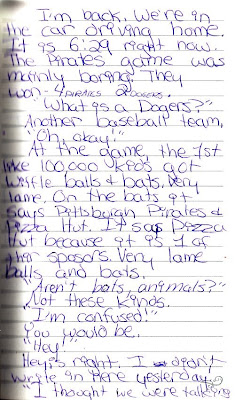 I'm back. We're in
the car driving home.
It is 6:29 right now.
The Pirates game was
mainly boring. They
won - 4 PIRATES 2 DOGERS.
"What is a Dogers?"
Another baseball team.
"Oh, okay!"
At the game, the 1st
like 100,000 kids got
wiffle balls & bats. Very
lame. On the bats it
says Pittsburgh Pirates &
Pizza Hut. It says Pizza
Hut because it is 1 of
their sposors. Very lame
balls and bats.
"Aren't bats, animals?"
Not these kinds.
"I'm confused!"
You would be.
"Hey!"
Hey is right. I didn't
write in here yesterday.
"I thought we were talking